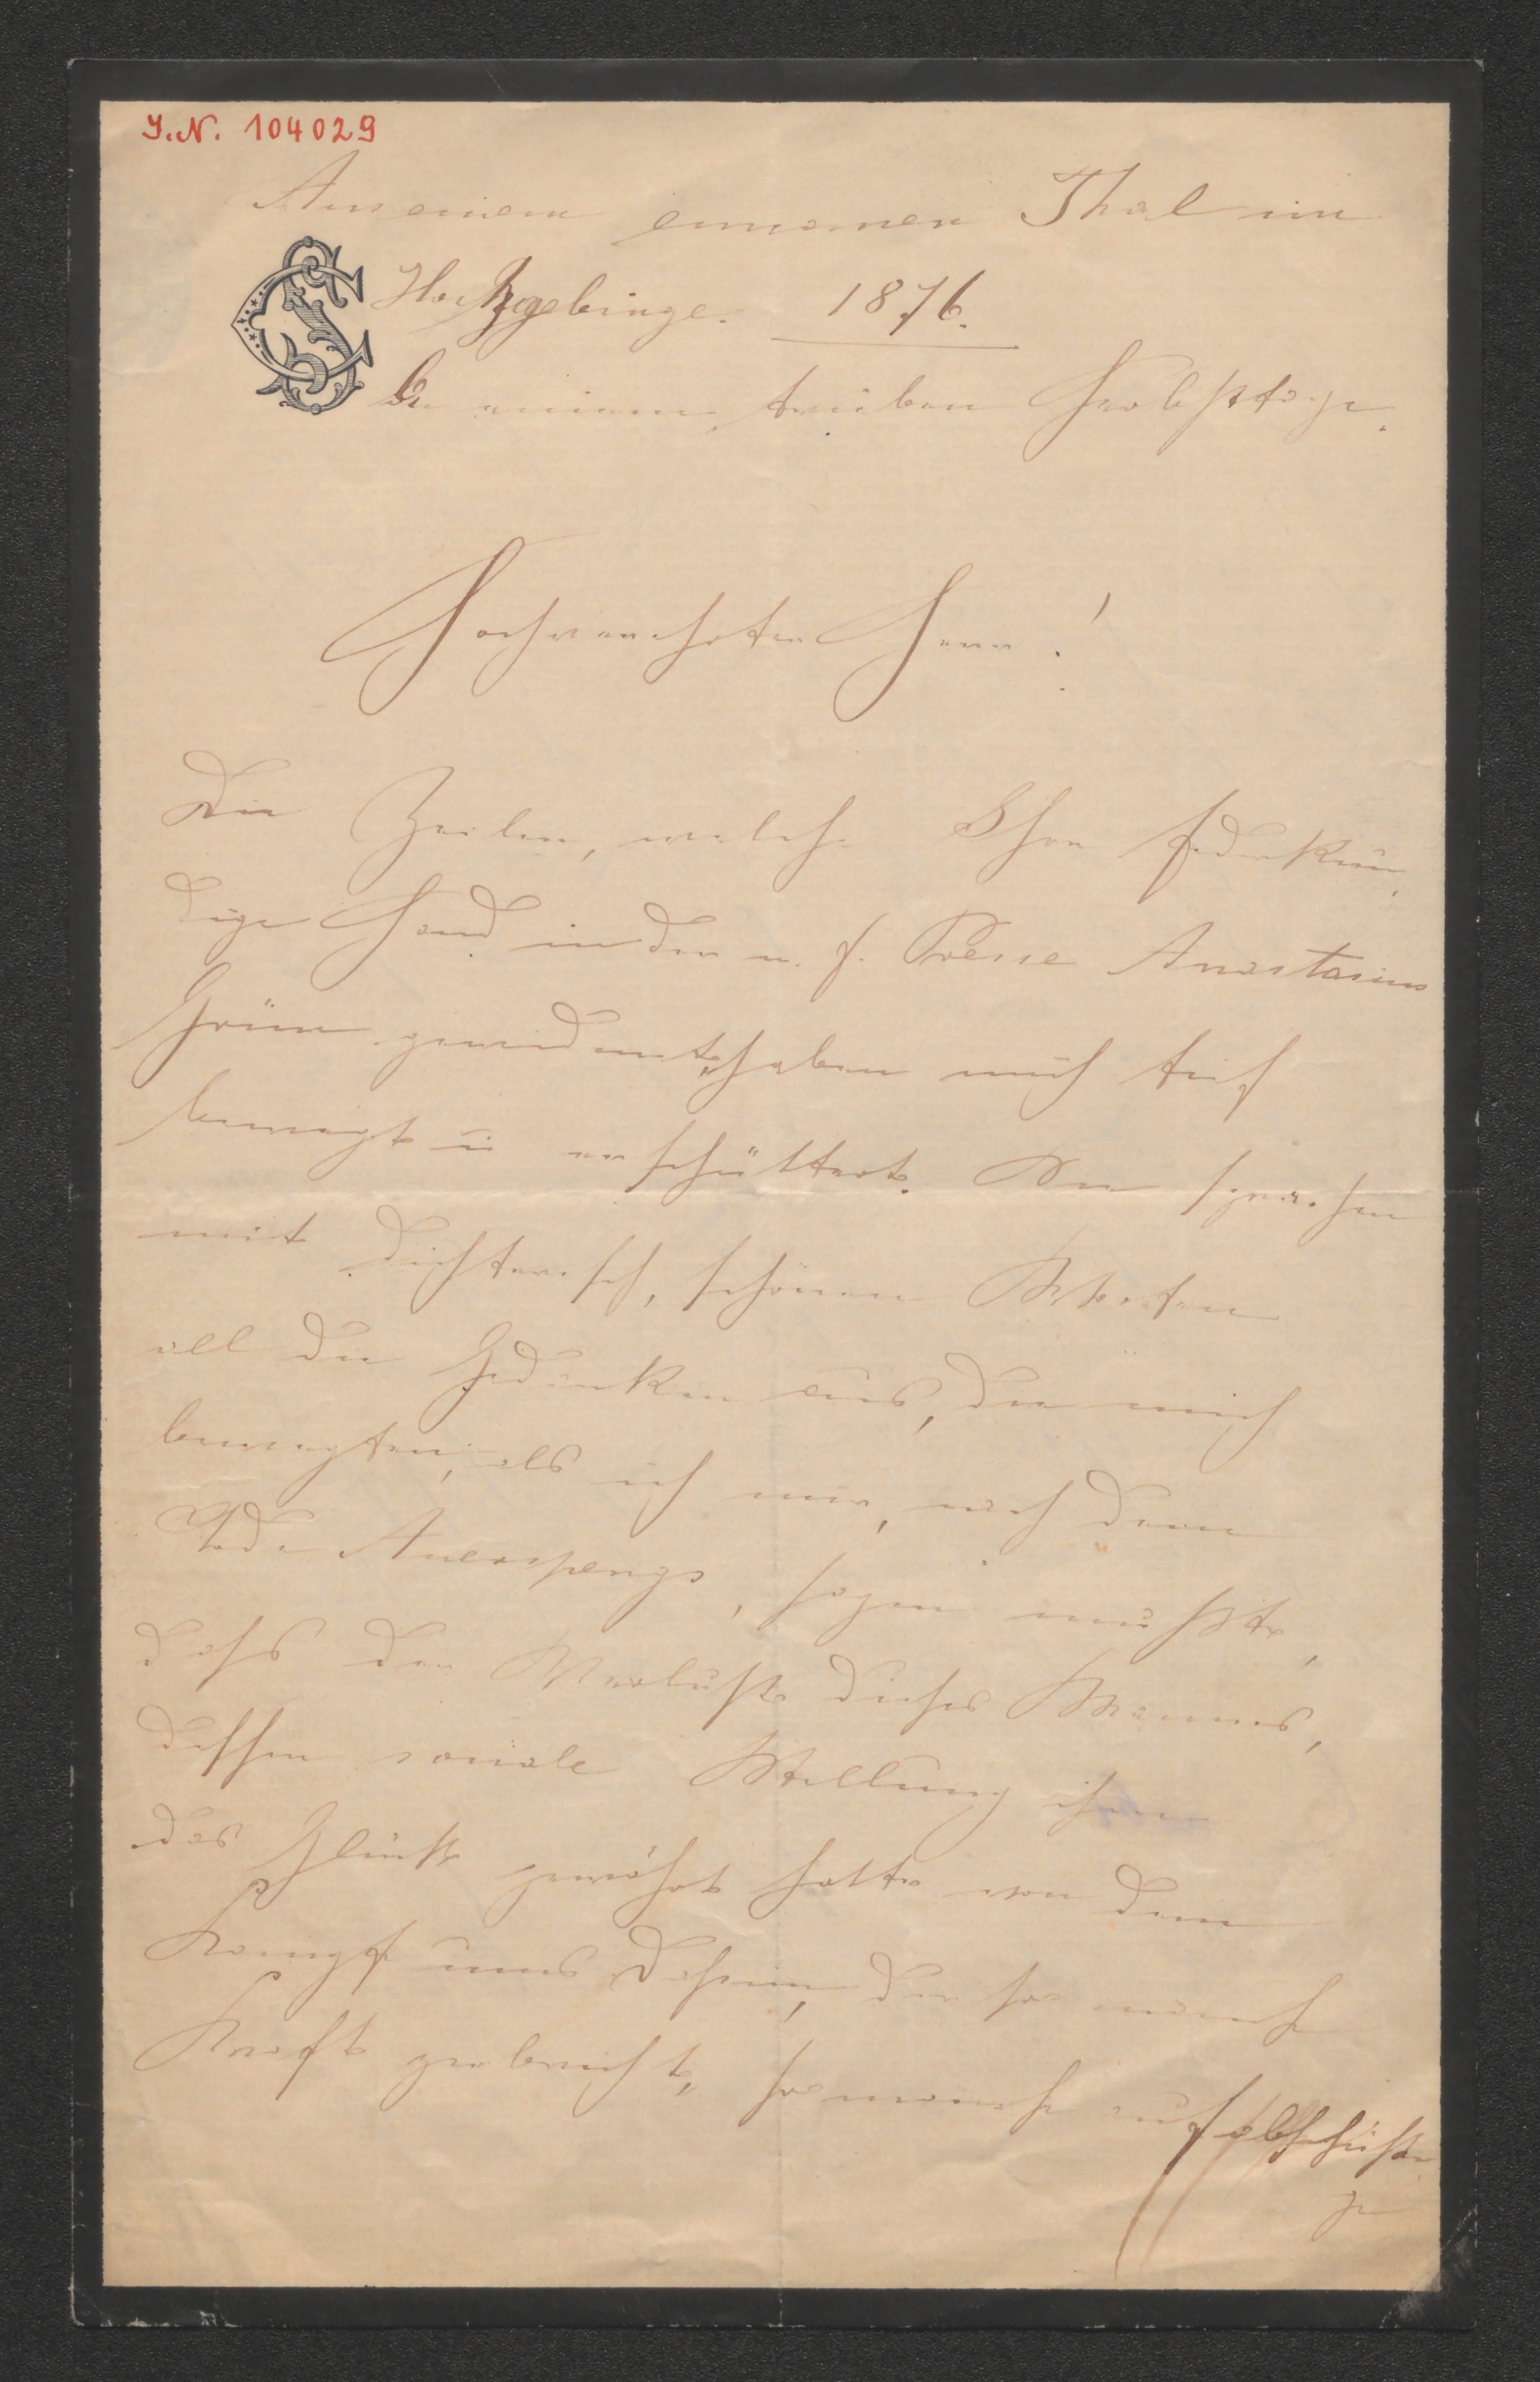 I.N. 104029
Aus einem einsamen Thal im
Hochgebirge. 1876.
An einem trüben Herbsttage.
Hochverehrter Herr!
Die Zeilen, welche Ihre federkun-
dige Hand in der n. f. Presse Anastasius
Grün gewidmet, haben mich tief
bewegt u erschüttert. Sie sprechen
mit dichterisch, schönen Worten
all die Gedanken aus, die mich
bewegten, als ich mir, nach dem
Tode Auerspergs, sagen mußte,
daß der Verlust dieses Mannes,
dessen sociale Stellung ihm
das Glück gewährt hatte von dem
Kampf ums Dasein, der so manche
Kraft zerbricht, so manche auf abschüßi-
ge